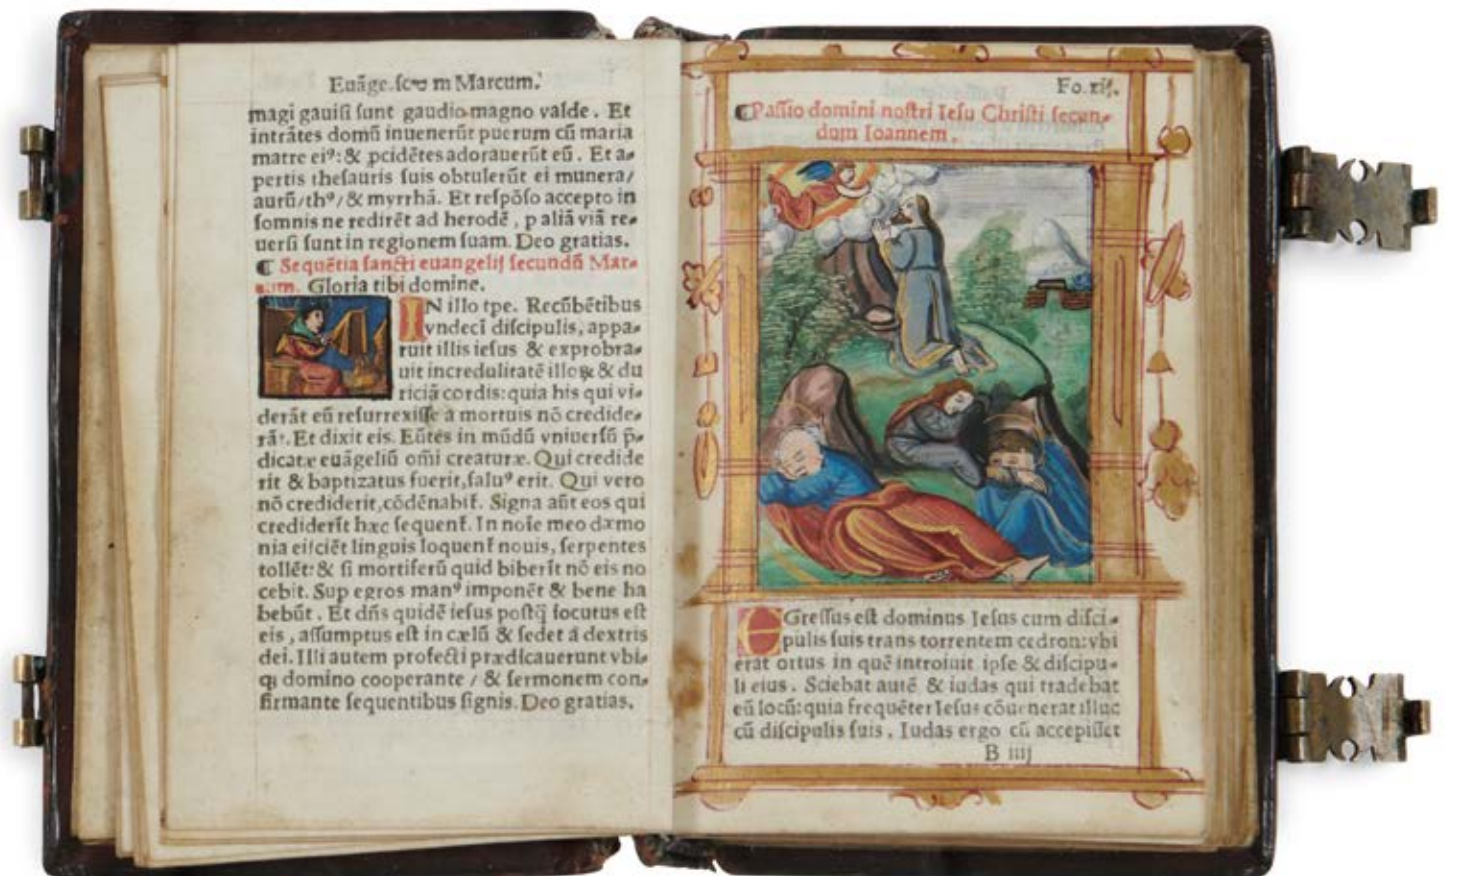 Euãge. m Marcum.
magi gauisi sunt gaudio magno valde. Et
intrãtes domũ inuenerũt puerum cũ maria
matre eiꝰ: & pcidẽtes adorauerũt eũ. Et a⸗
pertis thesauris suis obtulerũt ei munera/
aurũ/thꝰ/& myrrhã. Et respõso accepto in
somnis ne redirẽt ad herodẽ, p aliã viã re⸗
uersi sunt in regionem suam. Deo gratias.
¶ Sequẽtia sancti euangelij secundũ Mar⸗
cum. Gloria tibi domine.
IN illo tpe. Recũbẽtibus
vndecĩ discipulis, appa⸗
ruit illis iesus & exprobra⸗
uit incredulitatẽ illoꝝ & du
riciã cordis: quia his qui vi⸗
derãt eũ resurrexisse a mortuis nõ credide⸗
rãt. Et dixit eis. Eũtes in mũdũ vniuersũ p̃⸗
dicate euãgeliũ om̃i creaturæ. Qui credide
rit & baptizatus fuerit, saluꝰ erit. Qui vero
nõ crediderit, cõdẽnabit̃. Signa aũt eos qui
crediderĩt hæc sequent̃. In noĩe meo dæmo
nia eijciẽt linguis loquent̃ nouis, serpentes
tollẽt: & si mortiferũ quid biberĩt nõ eis no
cebit. Sup egros manꝰ imponẽt & bene ha
bebũt. Et dñs quidẽ iesus postq̃ locutus est
eis, assumptus est in cælũ & sedet a dextris
dei. Illi autem profecti prædicauerunt vbi⸗
qꝫ domino cooperante / & sermonem con⸗
firmante sequentibus signis. Deo gratias.
Fo. xij.
¶ Passio domini nostri Iesu Christi secun⸗
dum Ioannem.
EGressus est dominus Iesus cum disci⸗
pulis suis trans torrentem cedron: vbi
erat ortus in quẽ introiuit ipse & discipu⸗
li eius. Sciebat autẽ & iudas qui tradebat
eũ locũ: quia frequẽter Iesus cõuenerat illuc
cũ discipulis suis. Iudas ergo cũ accepisset
B iiij